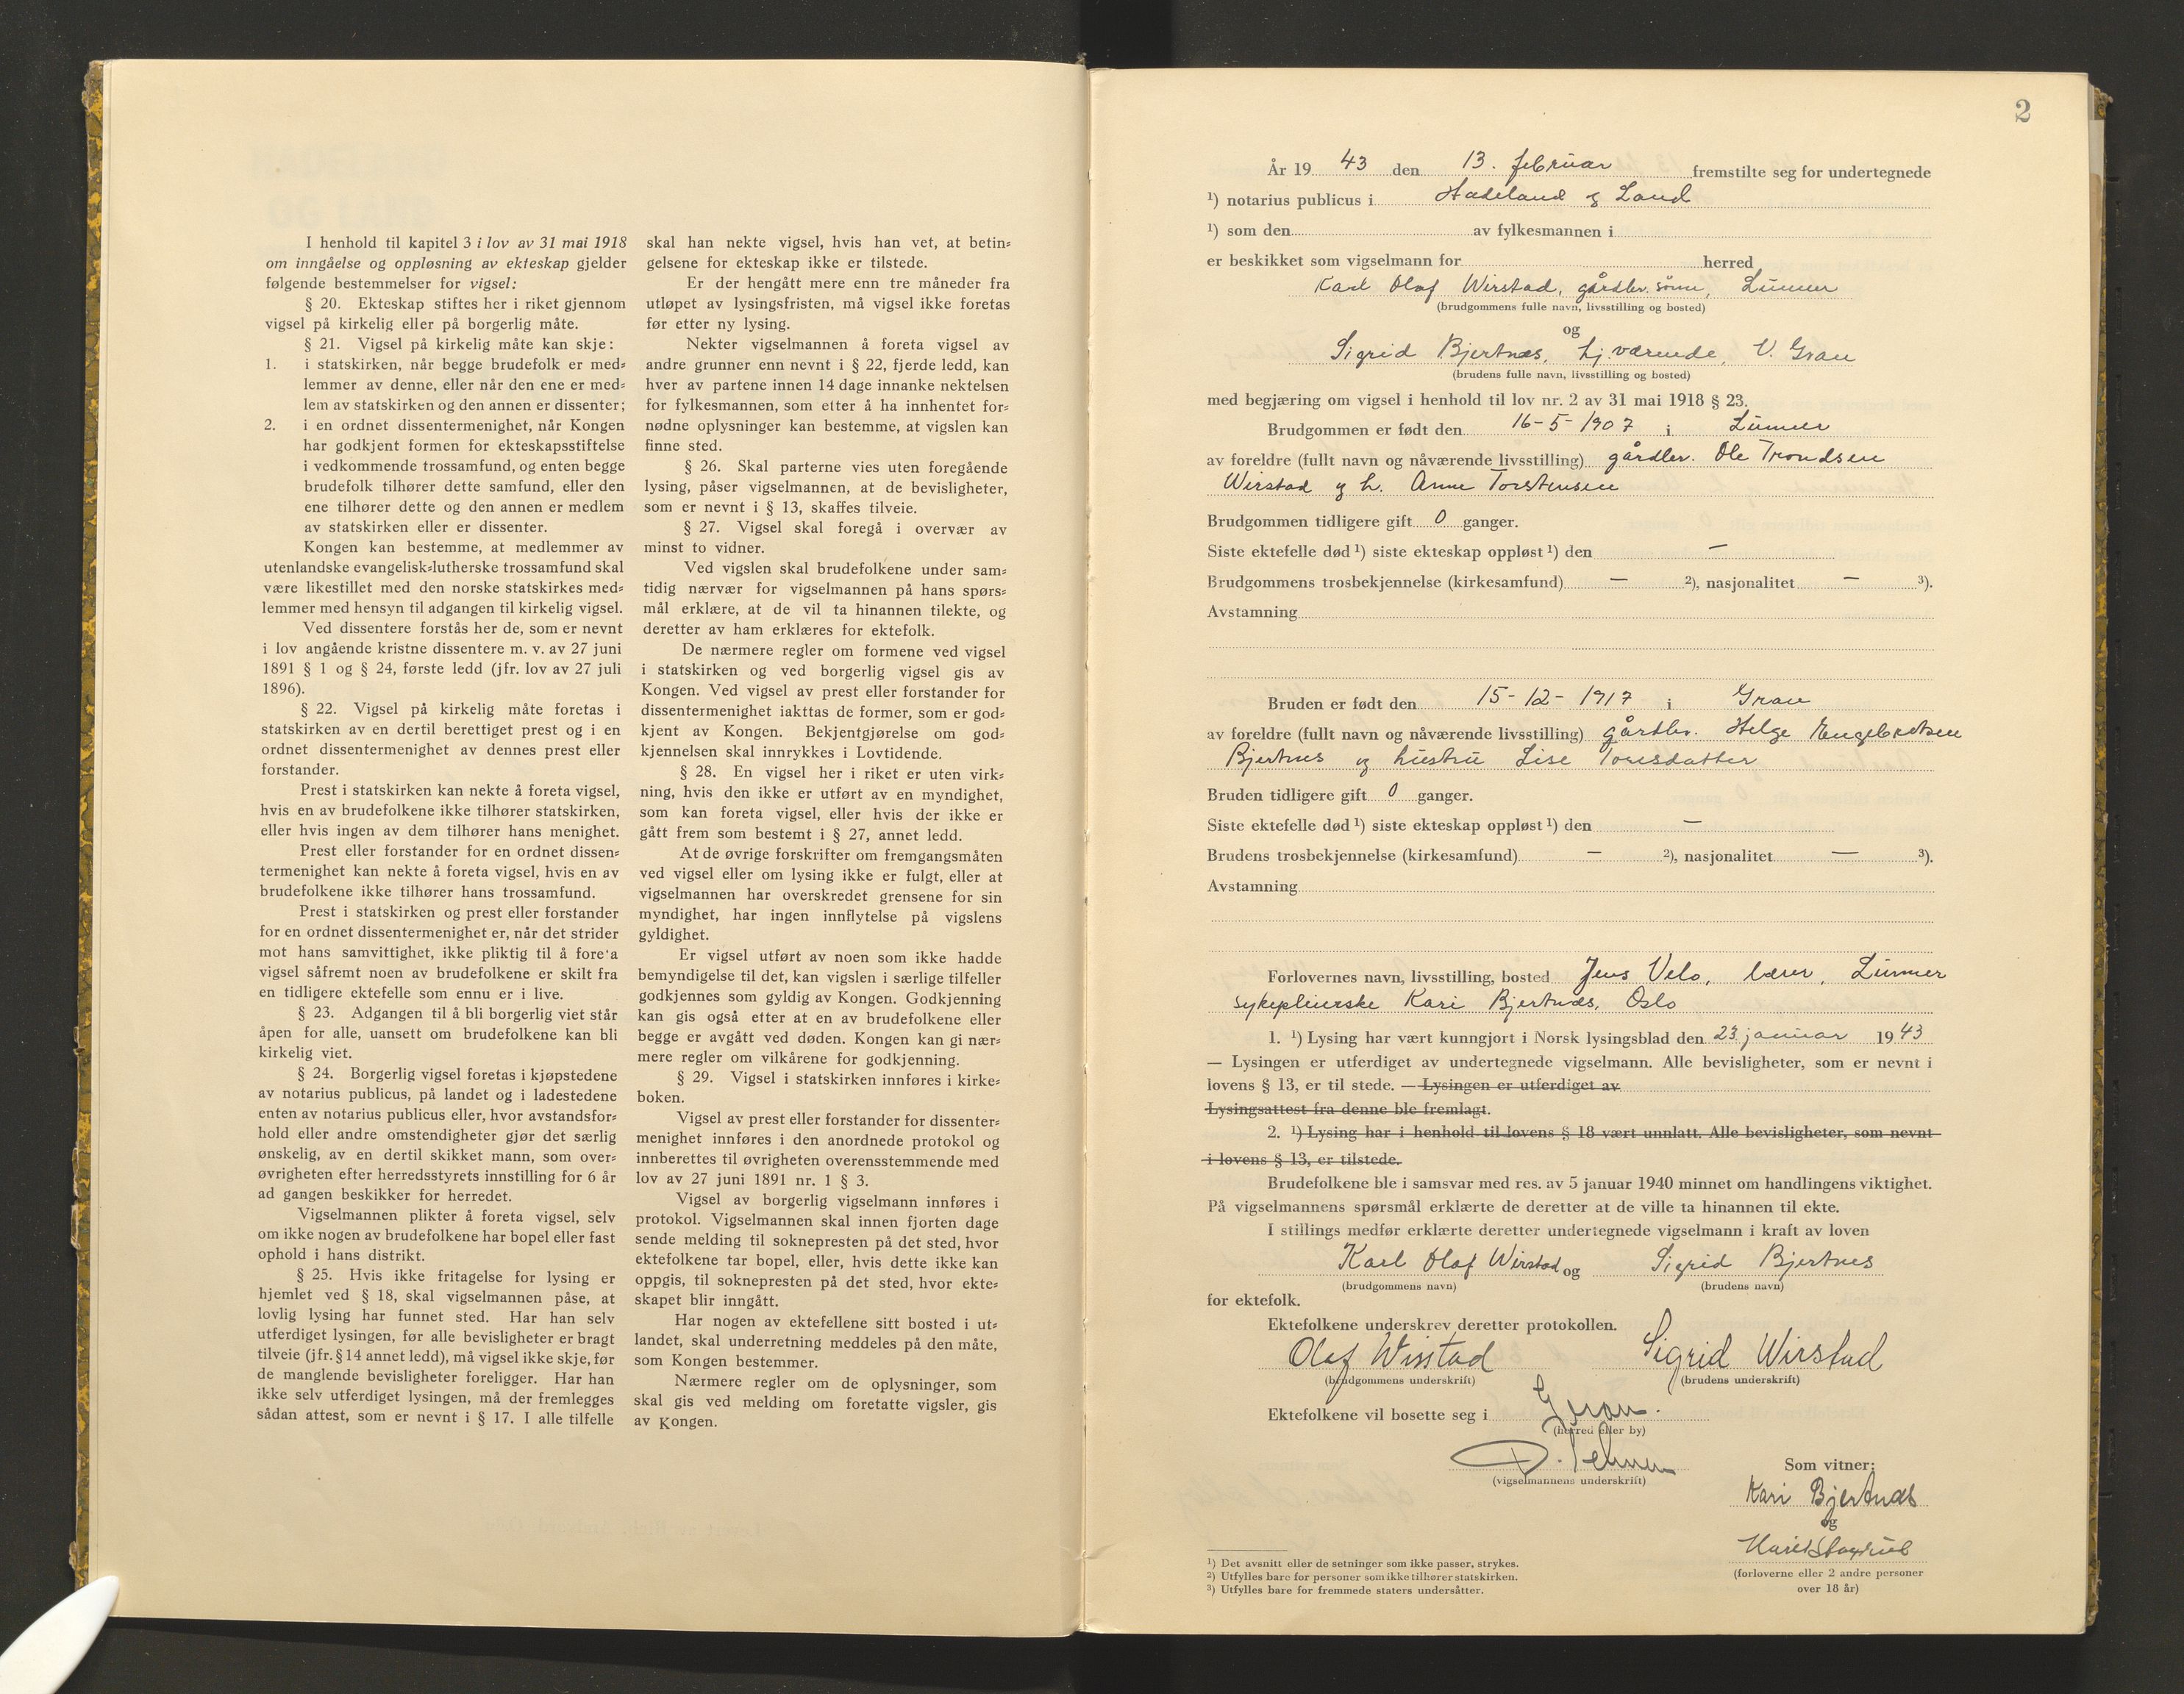 I henhold til kapitel 3 i lov av 31 mai 1918
om inngåelse og oppløsning av ekteskap gjelder
følgende bestemmelser for vigsel:
§ 20. Ekteskap stiftes her i riket gjennom
vigsel på kirkelig eller på borgerlig måte.
§ 21. Vigsel på kirkelig måte kan skje:
1. i statskirken, når begge brudefolk er med-
lemmer av denne, eller når den ene er med-
lem av statskirken og den annen er dissenter;
2. i en ordnet dissentermenighet, når Kongen
har godkjent formen for ekteskapsstiftelse
i vedkommende trossamfund, og enten begge
brudefolk tilhører dette samfund, eller den
ene tilhører dette og den annen er medlem
av statskirken eller er dissenter.
Kongen kan bestemme, at medlemmer av
utenlandske evangelisk-lutherske trossamfund skal
være likestillet med den norske statskirkes med-
lemmer med hensyn til adgangen til kirkelig vigsel.
Ved dissentere forstås her de, som er nevnt
i lov angående kristne dissentere m. v. av 27 juni
1891 § 1 og § 24, første ledd (jfr. lov av 27 juli
1896).
§ 22. Vigsel på kirkelig måte foretas i
statskirken av en dertil berettiget prest og i en
ordnet dissentermenighet av dennes prest eller
forstander.
Prest i statskirken kan nekte å foreta vigsel,
hvis en av brudefolkene ikke tilhører statskirken,
eller hvis ingen av dem tilhører hans menighet.
Prest eller forstander for en ordnet dissen-
termenighet kan nekte å foreta vigsel, hvis en av
brudefolkene ikke tilhører hans trossamfund.
Prest i statskirken og prest eller forstander
for en ordnet dissentermenighet er, når det strider
mot hans samvittighet, ikke pliktig til å fore'a
vigsel såfremt noen av brudefolkene er skilt fra
en tidligere ektefelle som ennu er i live.
§ 23. Adgangen til å bli borgerlig viet står
åpen for alle, uansett om brudefolkene kan bli
kirkelig viet.
§ 24. Borgerlig vigsel foretas i kjøpstedene
av notarius publicus, på landet og i ladestedene
enten av notarius publicus eller, hvor avstandsfor-
hold eller andre omstendigheter gjør det særlig
ønskelig, av en dertil skikket mann, som over-
øvrigheten efter herredsstyrets innstilling for 6 år
ad gangen beskikker for herredet.
Vigselmannen plikter å foreta vigsel, selv
om ikke nogen av brudefolkene har bopel eller fast
ophold i hans distrikt.
§ 25. Hvis ikke fritagelse for lysing er
hjemlet ved § 18, skal vigselmannen påse, at
lovlig lysing har funnet sted. Har han selv
utferdiget lysingen, før alle bevisligheter er bragt
tilveie (jfr. § 14 annet ledd), må vigsel ikke skje, før
de manglende bevisligheter foreligger. Har han
ikke selv utferdiget lysingen, må der fremlegges
sådan attest, som er nevnt i § 17. I alle tilfelle
skal han nekte vigsel, hvis han vet, at betin-
gelsene for ekteskap ikke er tilstede.
Er der hengått mere enn tre måneder fra
utløpet av lysingsfristen, må vigsel ikke foretas
før etter ny lysing.
Nekter vigselmannen å foreta vigsel av
andre grunner enn nevnt i § 22, fjerde ledd, kan
hver av partene innen 14 dage innanke nektelsen
for fylkesmannen, som etter å ha innhentet for-
nødne oplysninger kan bestemme, at vigslen kan
finne sted.
§ 26. Skal parterne vies uten foregående
lysing, påser vigselmannen, at de bevisligheter,
som er nevnt i § 13, skaffes tilveie.
§ 27. Vigsel skal foregå i overvær av
minst to vidner.
Ved vigslen skal brudefolkene under sam-
tidig nærvær for vigselmannen på hans spørs-
mål erklære, at de vil ta hinannen tilekte, og
deretter av ham erklæres for ektefolk.
De nærmere regler om formene ved vigsel
i statskirken og ved borgerlig vigsel gis av
Kongen. Ved vigsel av prest eller forstander for
dissentermenighet iakttas de former, som er god-
kjent av Kongen. Bekjentgjørelse om god-
kjennelsen skal innrykkes i Lovtidende.
§ 28. En vigsel her i riket er uten virk-
ning, hvis den ikke er utført av en myndighet,
som kan foreta vigsel, eller hvis der ikke er
gått frem som bestemt i § 27, annet ledd.
At de øvrige forskrifter om fremgangsmåten
ved vigsel eller om lysing ikke er fulgt, eller at
vigselmannen har overskredet grensene for sin
myndighet, har ingen innflytelse på vigslens
gyldighet.
Er vigsel utført av noen som ikke hadde
bemyndigelse til det, kan vigslen i særlige tilfeller
godkjennes som gyldig av Kongen. Godkjenning
kan gis også etter at en av brudefolkene eller
begge er avgått ved døden. Kongen kan gi nær-
mere regler om vilkårene for godkjenning.
§ 29. Vigsel i statskirken innføres i kirke-
boken.
Vigsel av prest eller forstander for dissenter-
menighet innføres i den anordnede protokol og
innberettes til øvrigheten overensstemmende med
lov av 27 juni 1891 nr. 1 § 3.
Vigsel av borgerlig vigselmann innføres i
protokol. Vigselmannen skal innen fjorten dage
sende melding til soknepresten på det sted, hvor
ektefolkene tar bopel, eller, hvis dette ikke kan
oppgis, til soknepresten på det sted, hvor ekte-
skapet blir inngått.
Har nogen av ektefellene sitt bosted i ut-
landet, skal underretning meddeles på den måte,
som Kongen bestemmer.
Nærmere regler om de oplysninger, som
skal gis ved melding om foretatte vigsler, gis
av Kongen.
2
År 19 43 den 13. februar fremstilte seg for undertegnede
¹) notarius publicus i Hadeland og Land
¹) som den av fylkesmannen i
er beskikket som vigselmann for herred
Karl Olaf Wirstad, gårdbr. sönn, Lunner
(brudgommens fulle navn, livsstilling og bosted)
og
Sigrid Bjertnæs, hj.værende, V. Gran
(brudens fulle navn, livsstilling og bosted)
med begjæring om vigsel i henhold til lov nr. 2 av 31 mai 1918 § 23.
Brudgommen er født den 16-5-1907 i Lunner
av foreldre (fullt navn og nåværende livsstilling) gårdbr. Ole Trondsen
Wirstad og h. Anne Torstensen
Brudgommen tidligere gift 0 ganger.
Siste ektefelle død ¹) siste ekteskap oppløst ¹) den —
Brudgommens trosbekjennelse (kirkesamfund) — ²), nasjonalitet — ³).
Avstamning
Bruden er født den 15-12-1917 i Gran
av foreldre (fullt navn og nåværende livsstilling) gårdbr. Helge Engebretsen
Bjertnes og hustru Lise Tomsdatter
Bruden tidligere gift 0 ganger.
Siste ektefelle død ¹) siste ekteskap oppløst ¹) den —
Brudens trosbekjennelse (kirkesamfund) — ²), nasjonalitet — ³).
Avstamning
Forlovernes navn, livsstilling, bosted Jens Velo, lærer, Lunner
sykepleierske Kari Bjertnæs, Oslo
1. ¹) Lysing har vært kunngjort i Norsk lysingsblad den 23. januar 1943
— Lysingen er utferdiget av undertegnede vigselmann. Alle bevisligheter, som er nevnt i
lovens § 13, er til stede. — Lysingen er utferdiget av
Lysingsattest fra denne ble fremlagt.
2. ¹) Lysing har i henhold til lovens § 18 vært unnlatt. Alle bevisligheter, som nevnt
i lovens § 13, er tilstede.
Brudefolkene ble i samsvar med res. av 5 januar 1940 minnet om handlingens viktighet.
På vigselmannens spørsmål erklærte de deretter at de ville ta hinannen til ekte.
I stillings medfør erklærte deretter undertegnede vigselmann i kraft av loven
Karl Olaf Wirstad og Sigrid Bjertnes
(brudgommens navn) (brudens navn)
for ektefolk.
Ektefolkene underskrev deretter protokollen.
Olaf Wirstad Sigrid Wirstad
(brudgommens underskrift) (brudens underskrift)
Ektefolkene vil bosette seg i Gran.
(herred eller by)
(vigselmannens underskrift)
Som vitner:
Kari Bjertnæs
og
(forloverne eller 2 andre personer
over 18 år)
¹) Det avsnitt eller de setninger som ikke passer, strykes.
²) Utfylles bare for personer som ikke tilhører statskirken.
³) Utfylles bare for fremmede staters undersåtter.